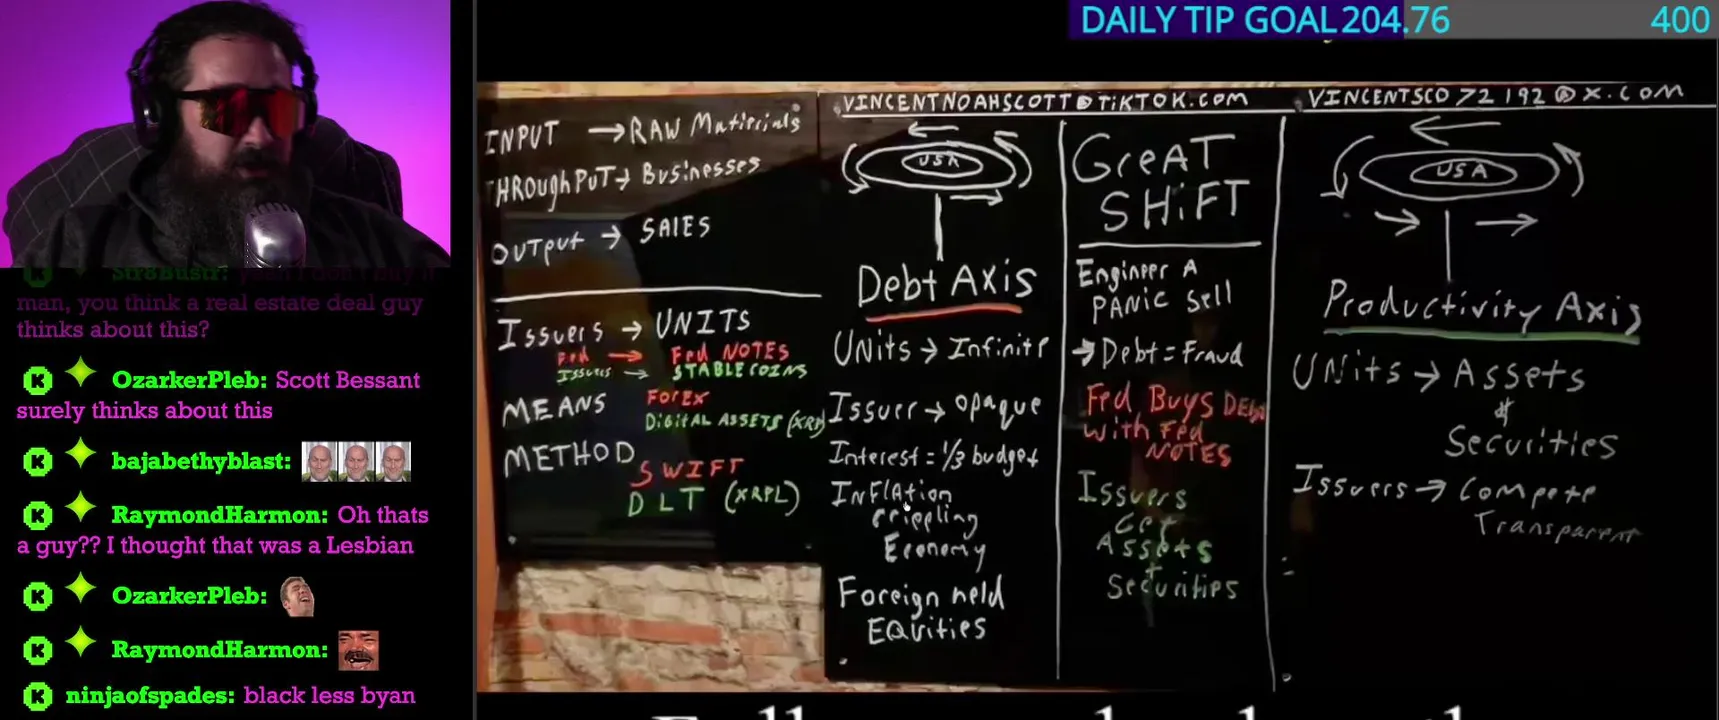 DAILY TIP GOAL 204.76 400
Str8Bustr:
man, you think a real estate deal guy
thinks about this?
OzarkerPleb: Scott Bessant
surely thinks about this
bajabethyblast:
RaymondHarmon: Oh thats
a guy?? I thought that was a Lesbian
OzarkerPleb:
RaymondHarmon:
ninjaofspades: black less byan
INPUT → RAW Matierials
THROUGHPUT → Businesses
OUTPUT → SALES
Issuers → UNITS
Fed → Fed NOTES
Issuers → STABLECOINS
MEANS FOREX
DIGITAL ASSETS (XRP)
METHOD
SWIFT
DLT (XRPL)
VINCENTNOAHSCOTT@TIKTOK.COM
USA
Debt Axis
UNits → Infinite
Issuer → opaque
Interest = 1/3 budget
INFlAtion
crippling
Economy
Foreign held
EQuities
GreAT
SHiFT
Engineer A
PANIC Sell
→ Debt = Fraud
Fed Buys DEbt
with Fed
NOTES
Issuers
Get
Assets
+
Securities
VINCENTSCO72192@X.COM
USA
Productivity Axis
UNits → Assets
&
Securities
Issuers → Compete
Transparent